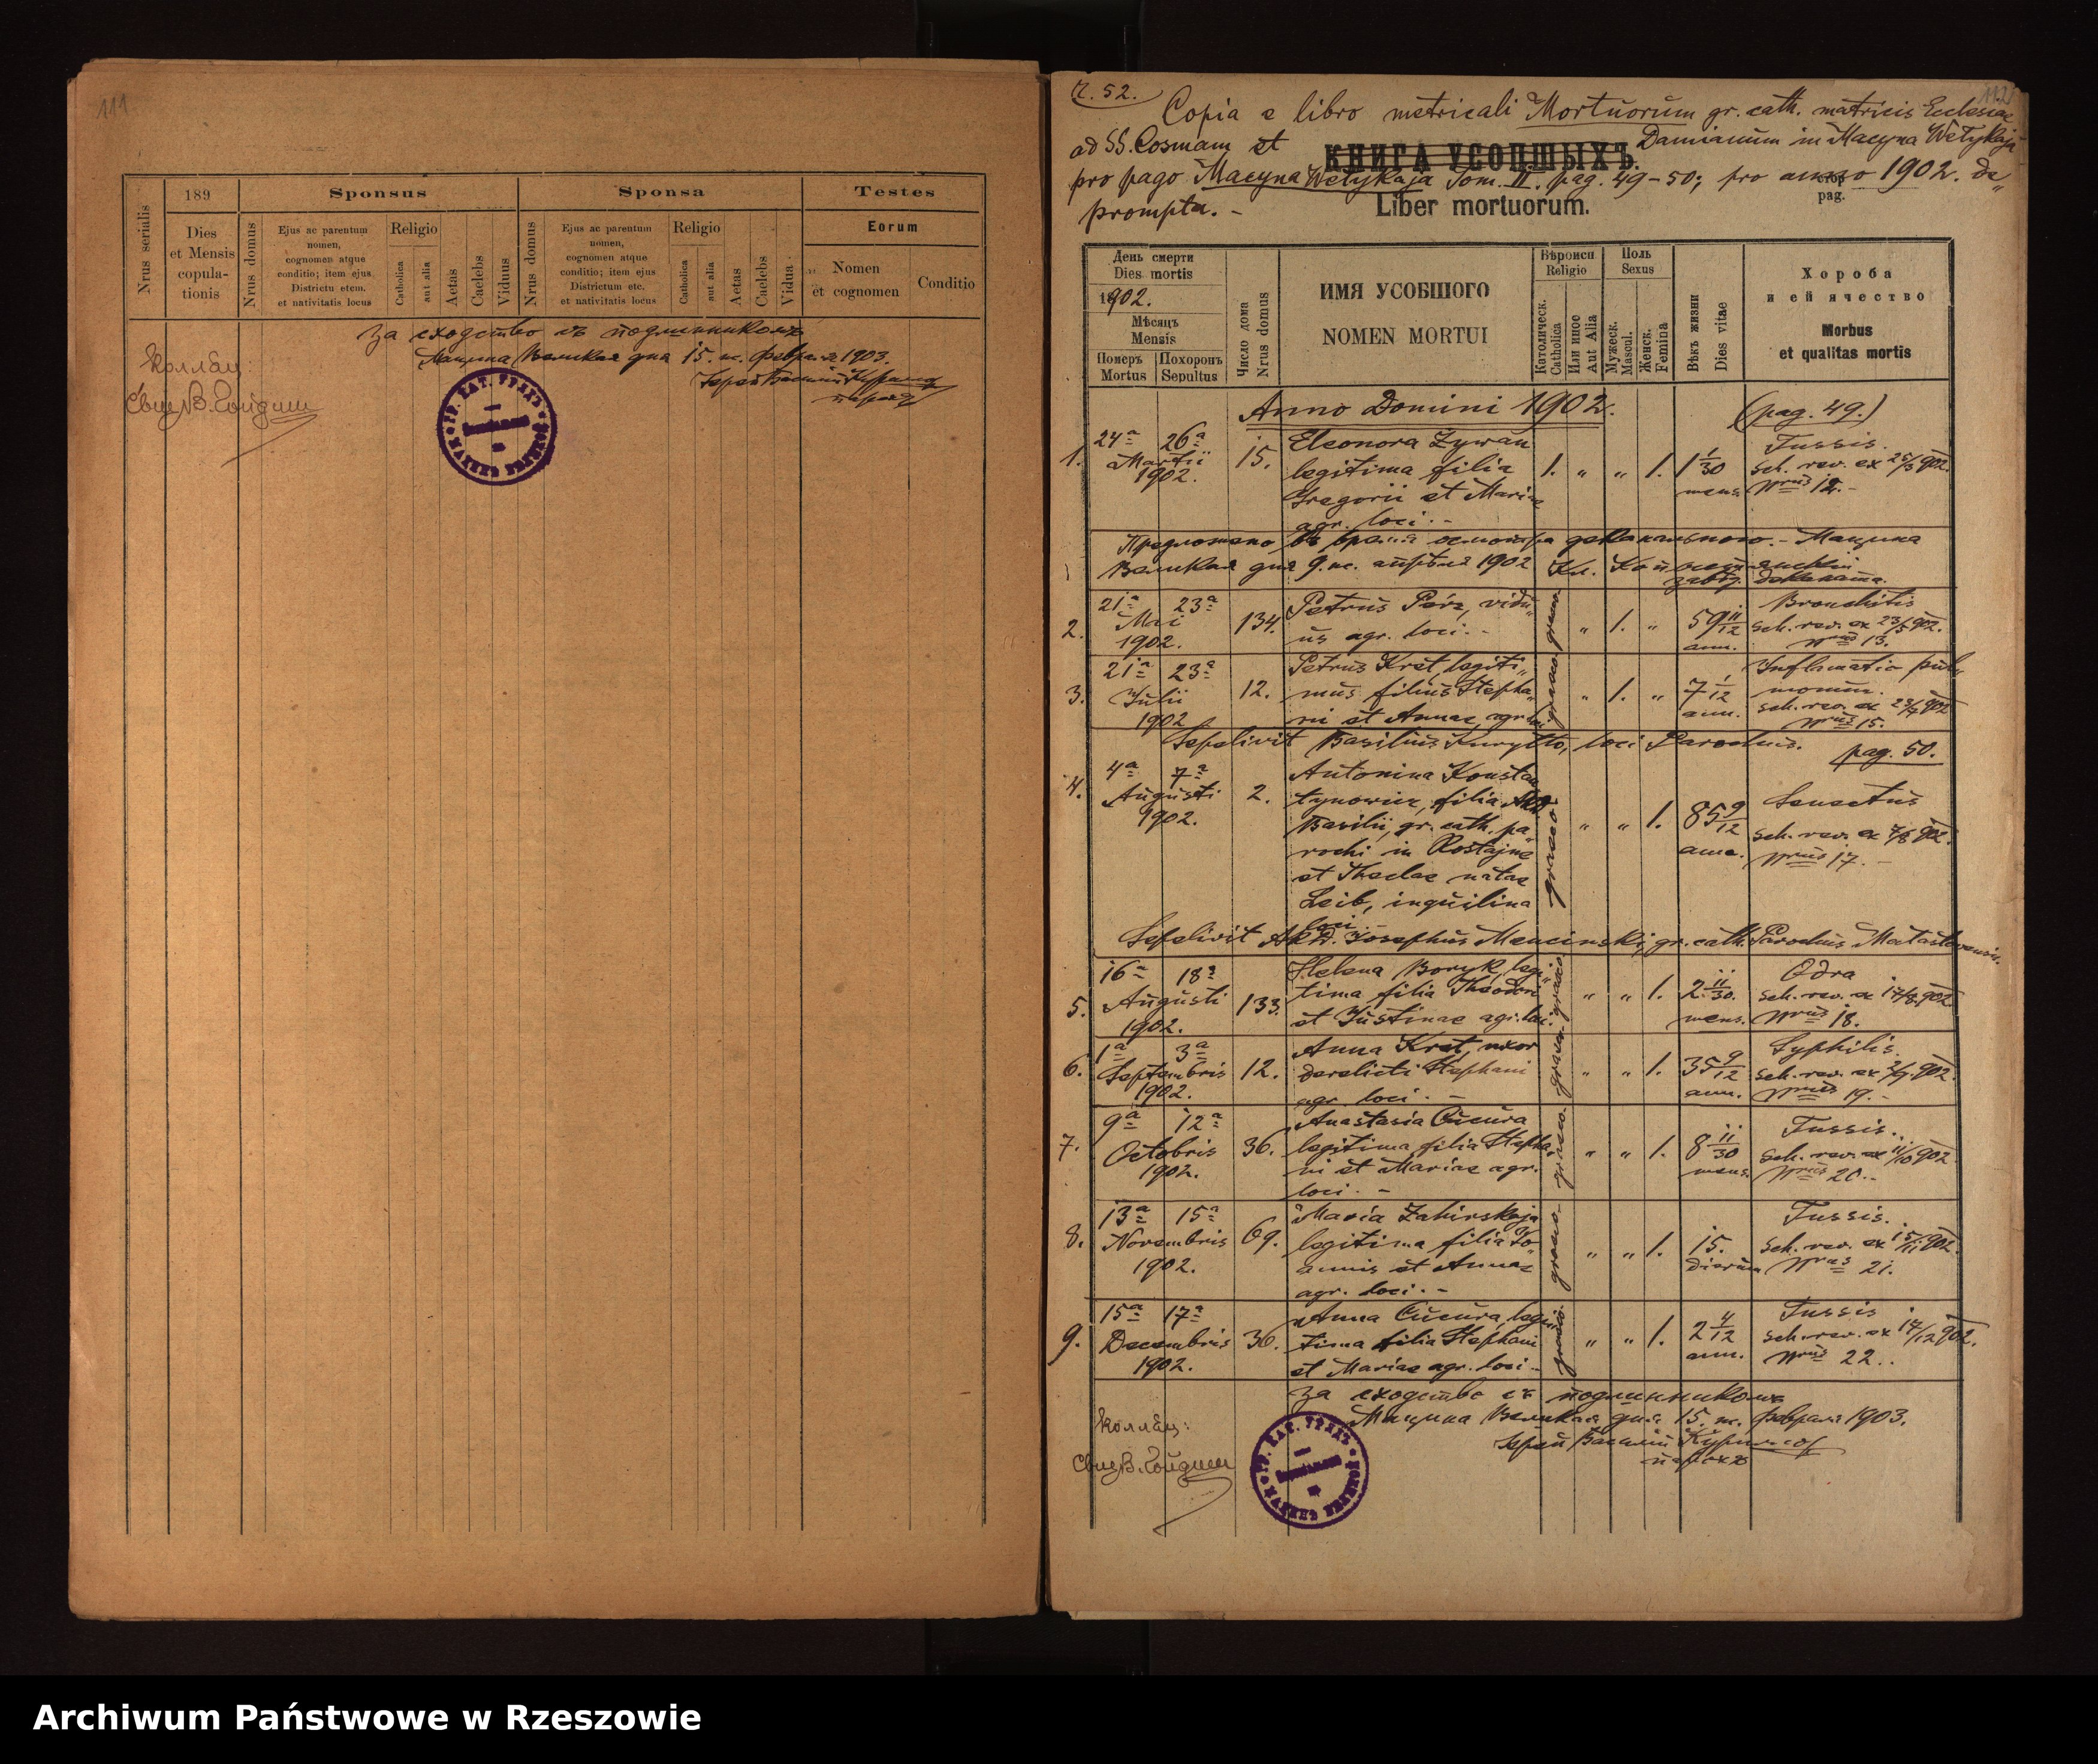 111
Nrus serialis
189
Dies
et Mensis
copula-
tionis
Nrus domus
Sponsus
Ejus ac parentum
nomen,
cognomen atque
conditio; item ejus
Districtu etcm.
et nativitatis locus
Religio
Catholica
aut alia
Aetas
Caelebs
Viduus
Sponsa
Nrus domus
Ejus ac parentum
nomen,
cognomen atque
conditio; item ejus
Districtum etc.
et nativitatis locus
Religio
Catholica
aut alia
Aetas
Caelebs
Vidua
Testes
Eorum
Nomen
et cognomen
Conditio
За сходство съ подлинникомъ
Мацина Великая дня 15. м. Февраля 1903.
112
Ч. 52.
Copia e libro metricali Mortuorum gr. cath. matricis Ecclesiae
ad SS. Cosmam et Damianum in Macyna Wełykaja
КНИГА УСОПШЫХЪ.
pro pago Macyna Wełykaja Tom. II. pag. 49-50; pro anno 1902. de„
prompta. -
Liber mortuorum.
pag.
День смерти
Dies mortis
1902.
Мѣсяцъ
Mensis
Померъ
Mortus
Похоронъ
Sepultus
Число дома
Nrus domus
ИМЯ УСОБШОГО
NOMEN MORTUI
Вѣроисп
Religio
Католическ.
Catholica
Или иное
Aut Alia
Поль
Sexus
Мужеск.
Mascul.
Женск.
Femina
Вѣкъ жизни
Dies vitae
Хороба
и ей ячество
Morbus
et qualitas mortis
Anno Domini 1902. (pag. 49.)
1. 24a 26a Martii 1902. 15.
Eleonora Zywan
legitima filia
Gregorii et Mariae
agr. loci. -
1. „ „ 1. 1 1/30 mens.
Tussis.
sch. rev. ex 25/3 902.
Nrus 12. -
Предложено въ время осмотра деканального. - Мацина
Великая дня 9. м. апрѣля 1902
2. 21a 23a Mai 1902. 134.
Petrus Perz, vidu„
us agr. loci. -
graeco.
„ 1. „ 59 11/12 ann.
Bronchitis
sch. rev. ex 23/5 902.
Nrus 13.
3. 21a 23a Julii 1902 12.
Petrus Kret, legiti„
mus filius Stepha„
ni et Annae, agr. loci
graeco.
„ 1. „ 7 1/12 ann.
Inflamatio pul„
monum.
sch. rev. ex 23/7 902
Nrus 15.
Sepelivit Basilius Kuryłło, loci Parochus. pag. 50.
4. 4a 7a Augusti 1902. 2.
Antonina Konstan
tynowicz, filia
Basilii, gr. cath. pa„
rochi in Rostajne
et Theclae natae
Leib, inquilina
loci. -
graeco
„ „ 1. 85 9/12 ann.
Senectus
sch. rev. ex 7/8 902.
Nrus 17. -
Sepelivit AR.D. Josephus Mencinski, gr. cath. Parochus Małastoviensis.
5. 16a 18a Augusti 1902. 133.
Helena Boryk, legi„
tima filia Theodori
et Justinae agr. loci.
graeco
„ „ 1. 2 11/30. mens.
Odra
sch. rev. ex 17/8 902
Nrus 18.
6. 1a 3a Septembris 1902. 12.
Anna Kret, uxor
derelicti Stephani
agr. loci. -
graeco
„ „ 1. 35 9/12 ann.
Syphilis.
sch. rev. ex 3/9 902.
Nrus 19. -
7. 9a 12a Octobris 1902. 36.
Anastasia Cucura
legitima filia Stepha„
ni et Mariae agr.
loci. -
graeco.
„ „ 1. 8 11/30 mens.
Tussis.
sch. rev. ex 11/10 902
Nrus 20. -
8. 13a 15a Novembris 1902. 69.
Maria Zahirskaja
legitima filia Jo„
annis et Annae
agr. loci. -
graeco.
„ „ 1. 15. dierum
Tussis.
sch. rev. ex 15/11 902.
Nrus 21.
9. 15a 17a Decembris 1902. 36.
Anna Cucura, legi„
tima filia Stephani
et Mariae agr. loci -
graeco.
„ „ 1. 2 4/12 ann.
Tussis
sch. rev. ex 17/12 902.
Nrus 22..
За сходство съ подлинникомъ
Мацина Великая дня 15. м. Февраля 1903.
Archiwum Państwowe w Rzeszowie